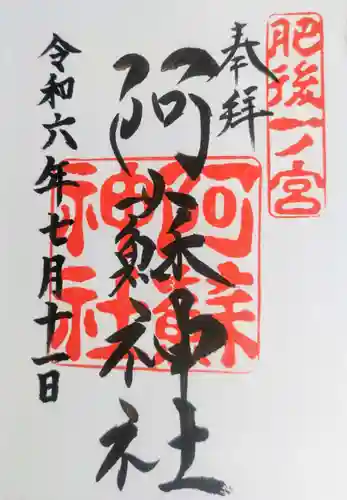 肥後一ノ宮
奉拝
阿蘇神社
阿蘇神社
令和六年七月十一日